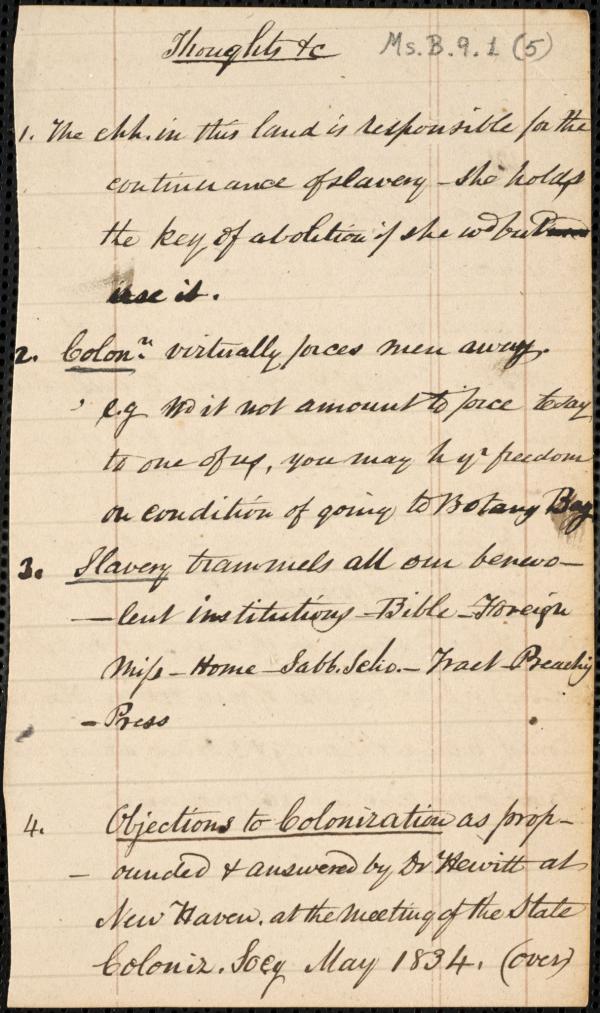 Thoughts &c Ms.B.9.1 (5)
1. The chh. in this land is responsible for the
continuance of slavery - she holds
the key of abolition if she wd but
use it.
2. Colonn. virtually forces men away.
e.g Wd it not amount to force to say
to one of us, you may h yr freedom
on condition of going to Botany Bay
3. Slavery trammels all our benevo-
-lent institutions - Bible - Foreign
Miss - Home - Sabb. Scho. - Tract - Preachig
- Press
4. Objections to Colonization as prop-
- ounded & answered by Dr Hewitt at
New Haven. at the meeting of the State
Coloniz. Socy May 1834. (over)